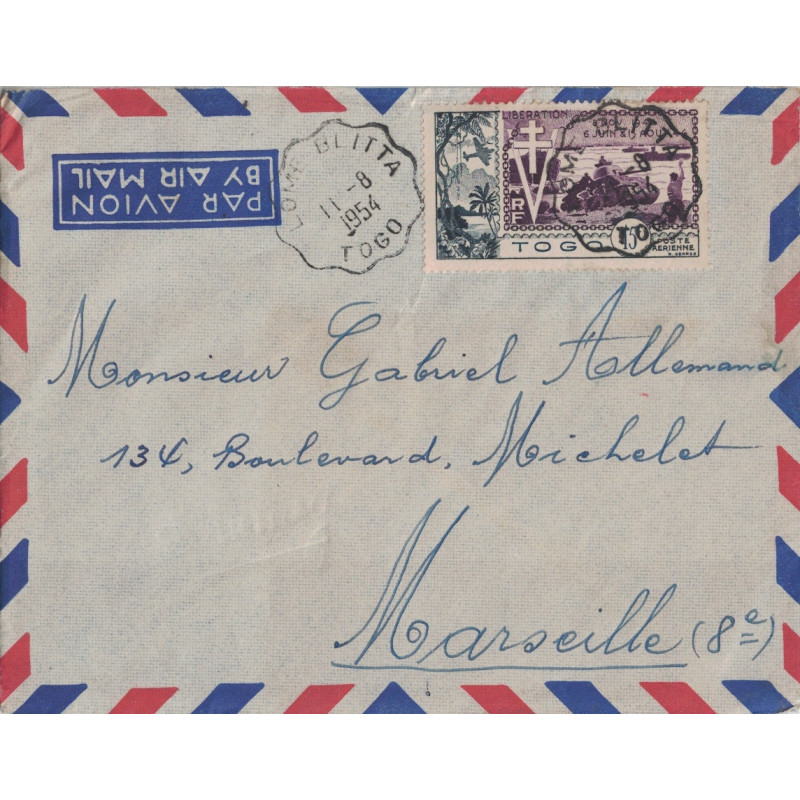 PAR AVION
BY AIR MAIL
LOME BLITTA
11-8
1954
TOGO
LIBERATION
6 JUIN
RF
TOGO
15F
POSTE
AERIENNE
Monsieur Gabriel Allemand
134, Boulevard, Michelet
Marseille (8e)